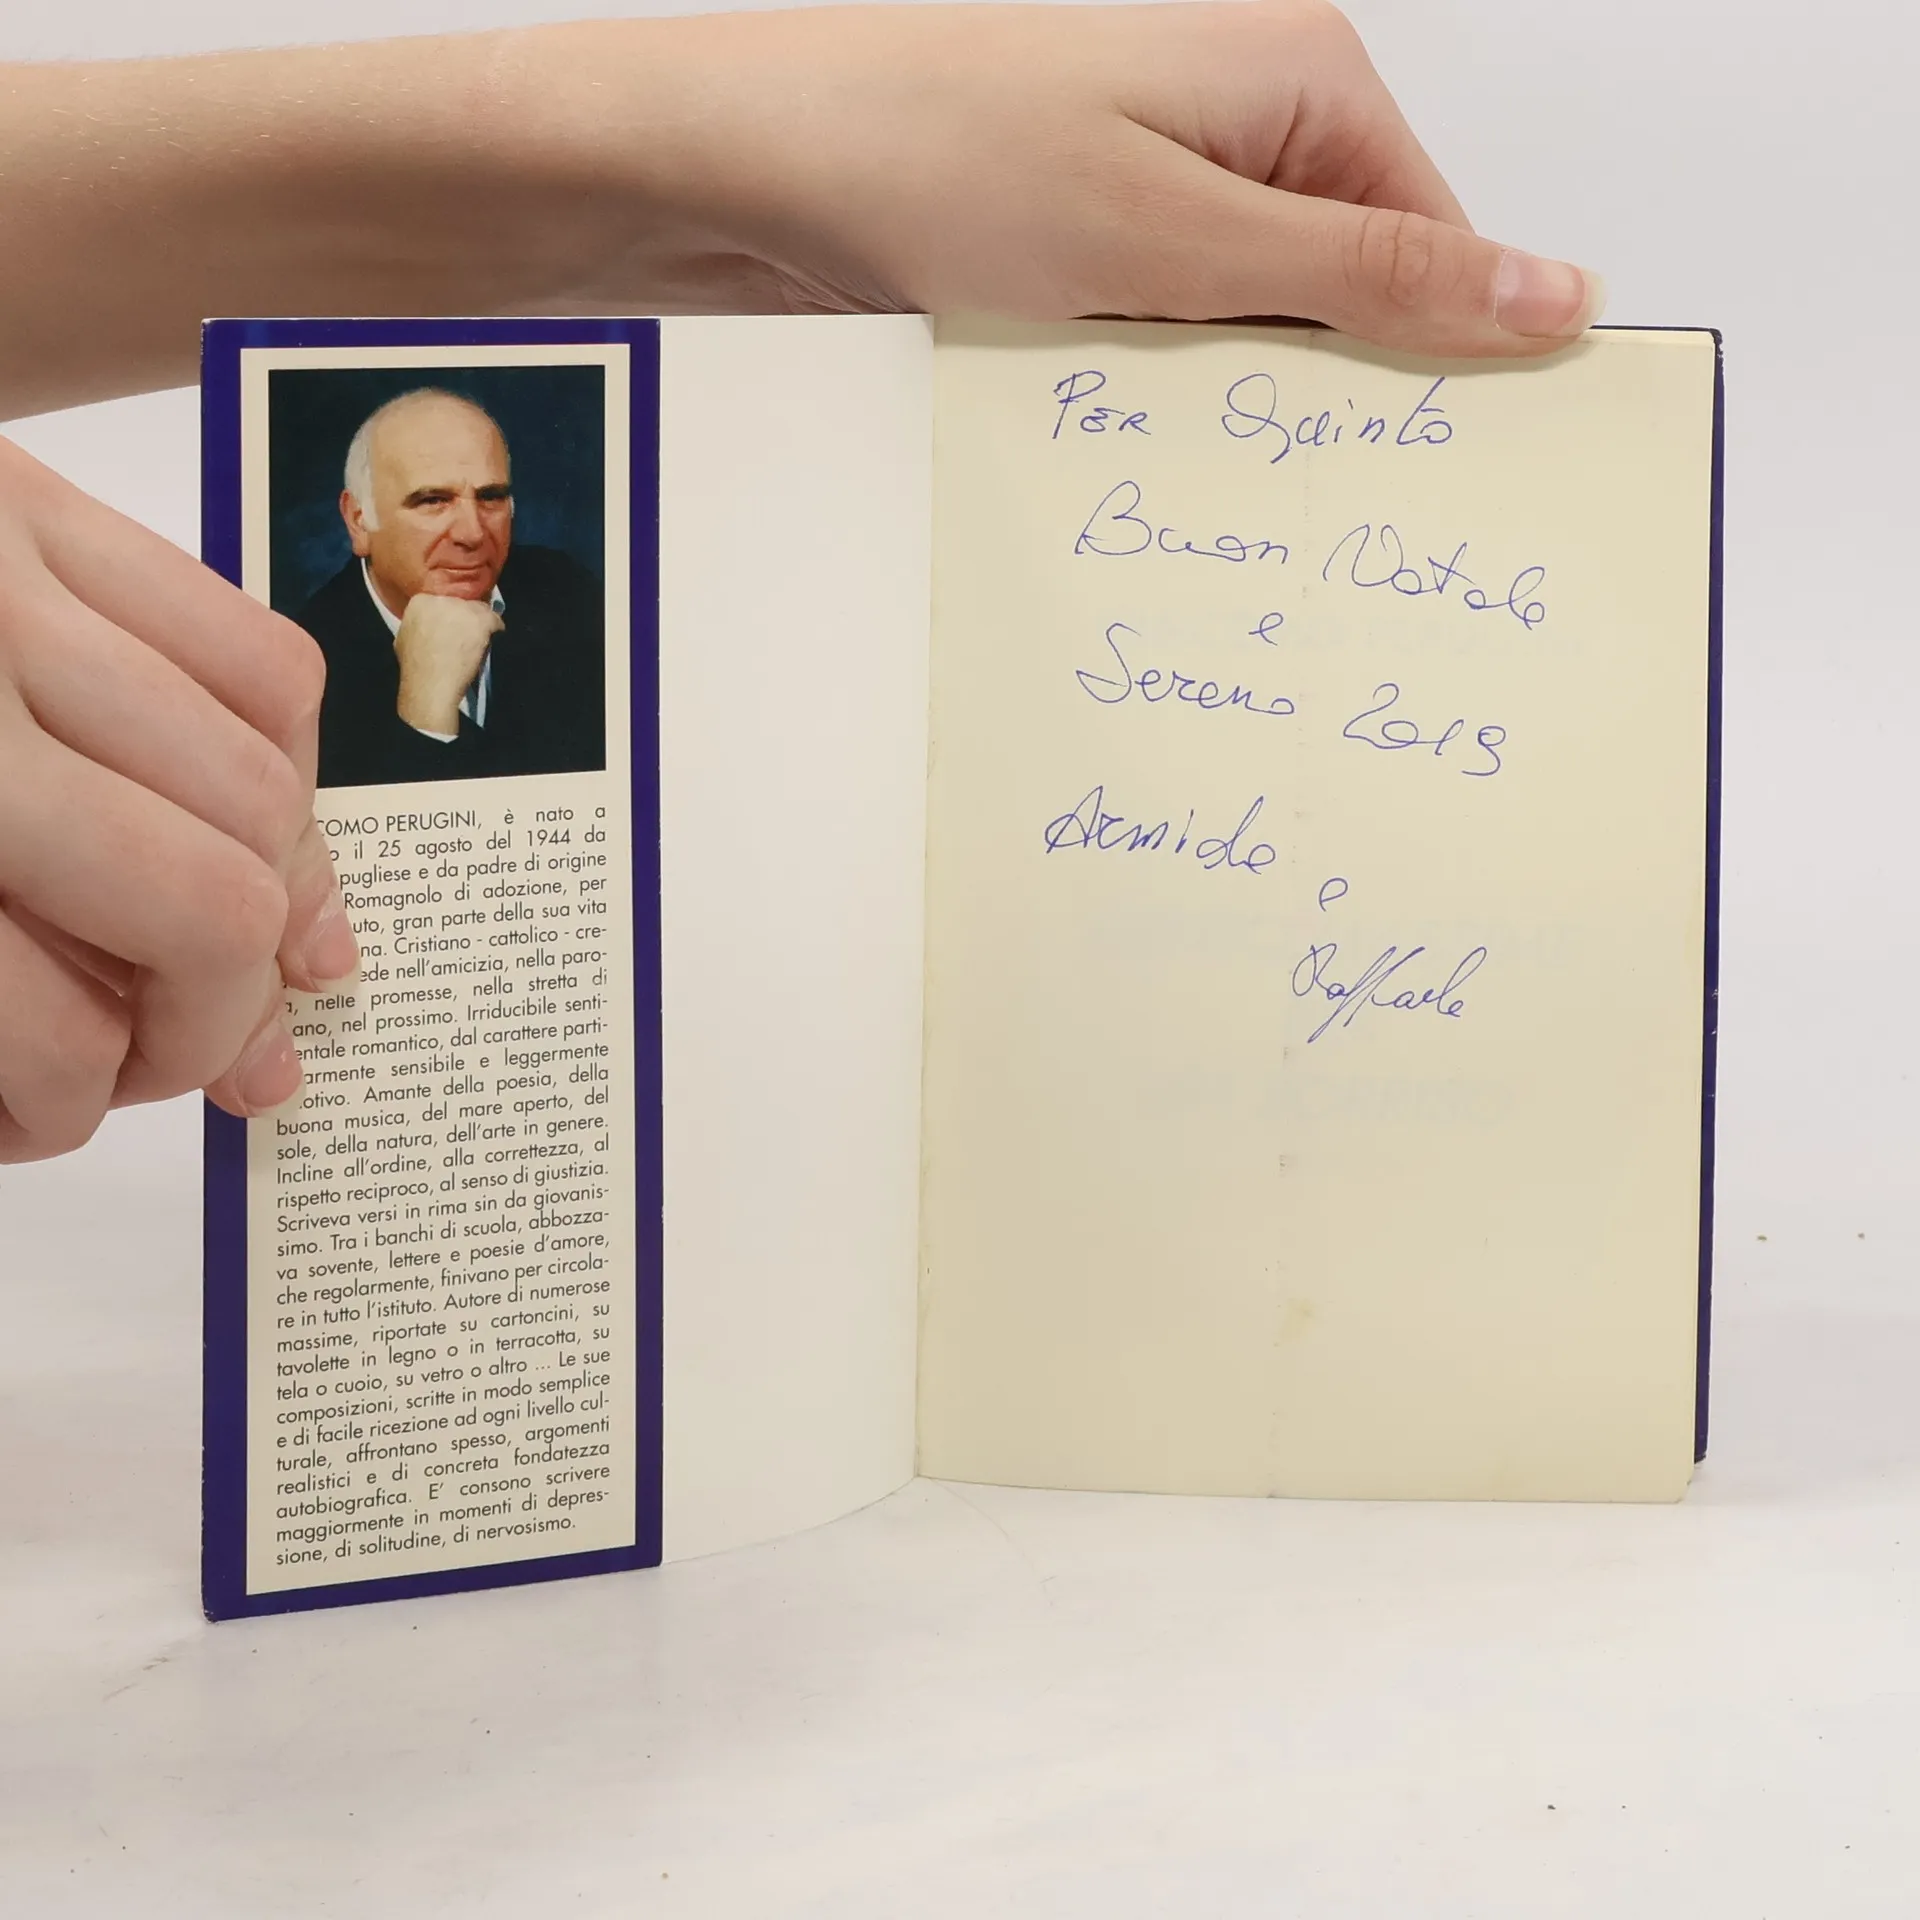 COMO PERUGINI, è nato a
o il 25 agosto del 1944 da
pugliese e da padre di origine
Romagnolo di adozione, per
uto, gran parte della sua vita
na. Cristiano - cattolico - cre-
ede nell'amicizia, nella paro-
a, nelle promesse, nella stretta di
ano, nel prossimo. Irriducibile senti-
entale romantico, dal carattere parti-
armente sensibile e leggermente
otivo. Amante della poesia, della
buona musica, del mare aperto, del
sole, della natura, dell'arte in genere.
Incline all'ordine, alla correttezza, al
rispetto reciproco, al senso di giustizia.
Scriveva versi in rima sin da giovanis-
simo. Tra i banchi di scuola, abbozza-
va sovente, lettere e poesie d'amore,
che regolarmente, finivano per circola-
re in tutto l'istituto. Autore di numerose
massime, riportate su cartoncini, su
tavolette in legno o in terracotta, su
tela o cuoio, su vetro o altro ... Le sue
composizioni, scritte in modo semplice
e di facile ricezione ad ogni livello cul-
turale, affrontano spesso, argomenti
realistici e di concreta fondatezza
autobiografica. E' consono scrivere
maggiormente in momenti di depres-
sione, di solitudine, di nervosismo.
PER Quinto
Buon Natale
e
Sereno 2019
Armida
e
Raffaele